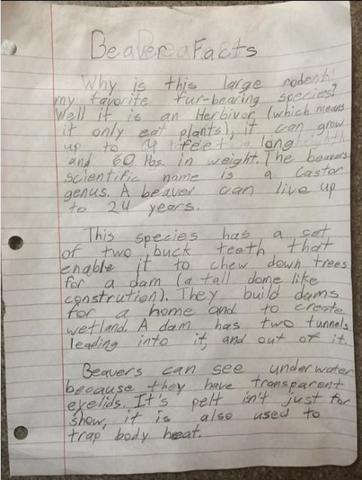 Beaver Facts
Why is this large rodent
my favorite fur-bearing species?
Well it is an Herbivor (which means
it only eat plants), it can grow
up to 4 feet long
and 60 lbs in weight. The beavers
scientific name is a Castor
genus. A beaver can live up
to 24 years.
This species has a set
of two buck teeth that
enable it to chew down trees
for a dam (a tall dome like
constrution). They build dams
for a home and to create
wetland. A dam has two tunnels
leading into it, and out of it.
Beavers can see underwater
because they have transparent
eyelids. It's pelt isn't just for
show, it is also used to
trap body heat.